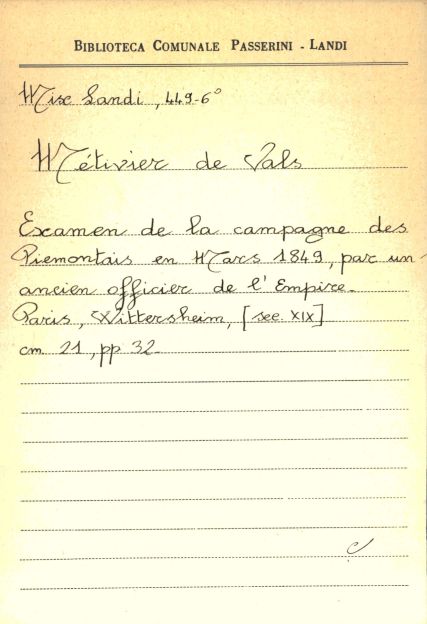 BIBLIOTECA COMUNALE PASSERINI - LANDI
Misc Landi, 449-6°
Métivier de Vals
Examen de la campagne des
Piemontais en Mars 1849, par un
ancien officier de l'Empire.
Paris, Wittersheim, [sec. XIX]
cm 21, pp 32.